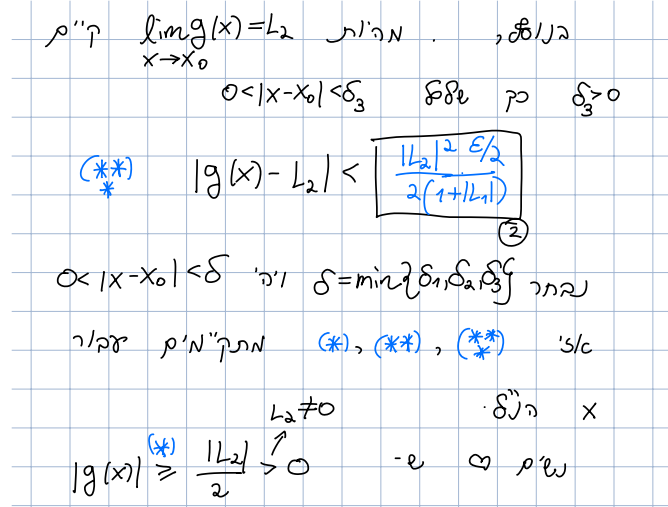 בנוסף, . מהיות lim g(x)=L₂ קיים
x→x₀
δ₃>0 כך שלכל 0<|x-x₀|<δ₃
|g(x)-L₂| < |L₂|² ε/2 / 2(1+|L₁|) (**
*)
②
נבחר δ=min{δ₁,δ₂,δ₃} ויהי 0<|x-x₀|<δ
אזי (*), (**), (**
*) מתקיימים עבור
x הנ"ל.
L₂≠0
נשים ♡ ש- |g(x)| ≥ |L₂|/2 > 0
(*)